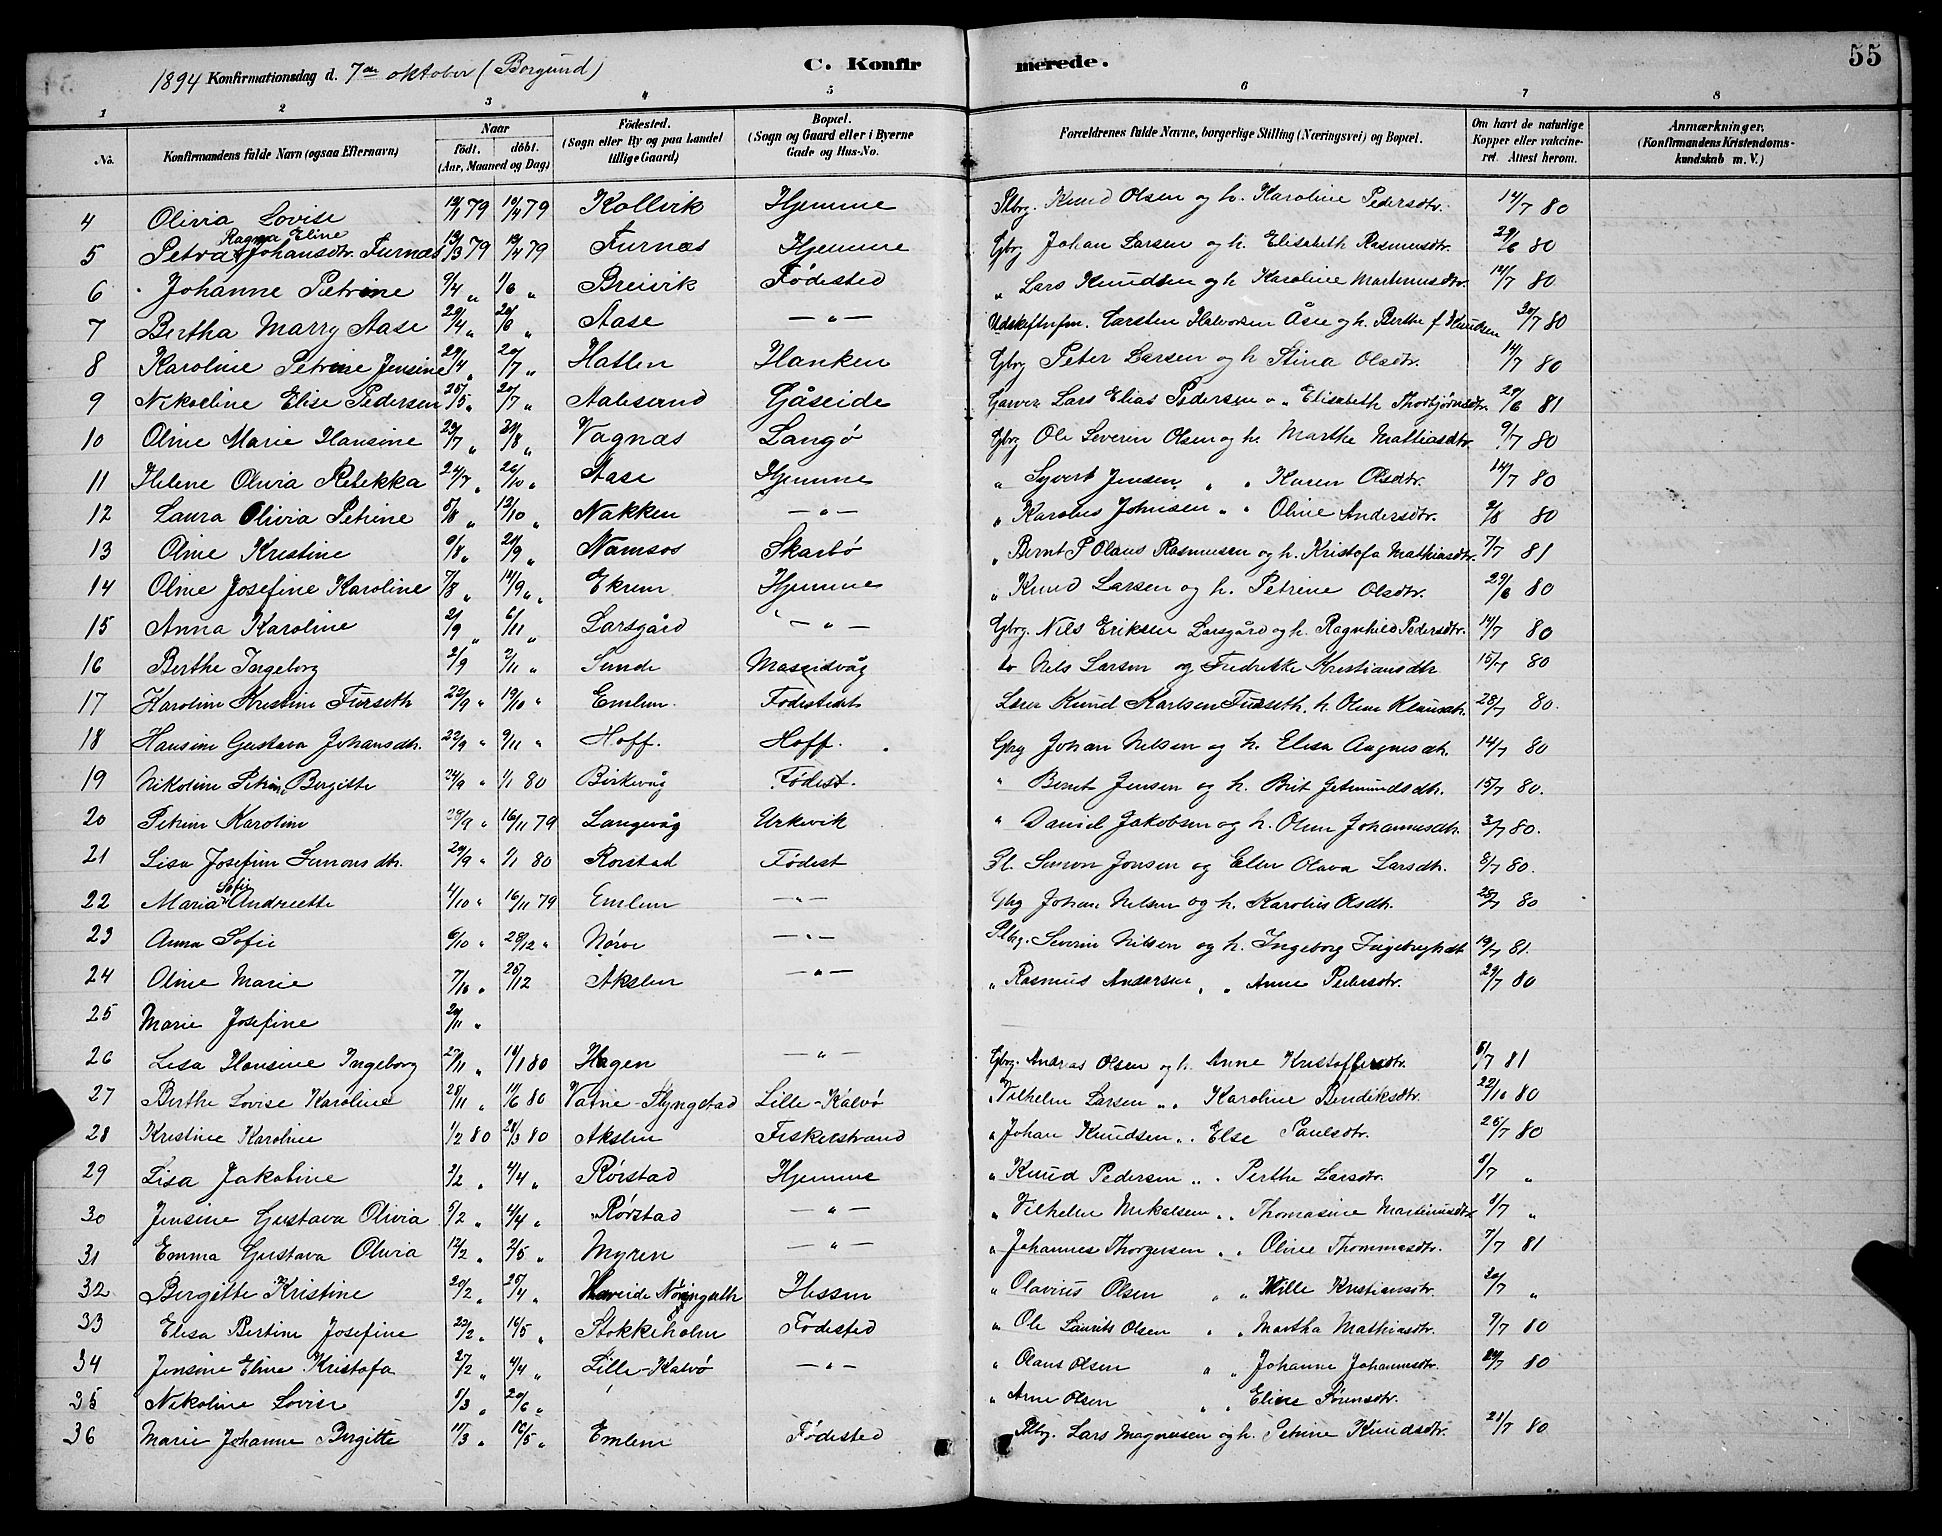 1894 Konfirmationsdag d. 7de oktober (Borgund) C. Konfirmerede. 55
1 2 3 4 5 6 7 8
No. Konfirmandens fulde Navn (ogsaa Efternavn) Naar født. døbt. (Aar, Maaned og Dag) Fødested. (Sogn eller By og paa Landet tillige Gaard) Bopæl. (Sogn og Gaard eller i Byerne Gade og Hus-No. Forældrenes fulde Navne, borgerlige Stilling (Næringsvei) og Bopæl. Om havt de naturlige Kopper eller vakcineret. Attest herom. Anmærkninger. (Konfirmandens Kristendomskundskab m. V.)
4 Olivia Lovise 12/1 79 10/4 79 Kollvik Hjemme Plbrg. Knud Olsen og h. Karoline Pedersdtr. 14/7 80
5 Petra Ragna Eline Johansdtr. Furnæs 13/3 79 13/4 79 Furnæs Hjemme Gbrg Johan Larsen og h. Elisabeth Rasmusdtr. 29/6 80
6 Johanne Petrine 9/4 " 1/6 " Breivik Fødested " Lars Knudsen og h Karoline Martinusdtr. 14/7 80
7 Bertha Marry Aase 29/4 " 29/6 " Aase — " — Udskiftnfm. Carsten Halvorsen Åse og h. Berthe f. Knudsen 20/7 80
8 Karoline Petrine Jensine 29/4 " 20/7 " Hatlen Hanken Gbrg Peter Larsen og h Stina Olsdtr. 14/7 80
9 Nikoline Elise Pedersen 25/5 " 20/7 " Aalesund Gåseide Garver Lars Elias Pedersen o " Elisabeth Thorbjørnsdtr. 29/6 81
10 Oline Marie Hansine 23/7 " 31/8 " Vagnæs Langø Gbrg Ole Severin Olsen og h. Marthe Mattiasdtr. 9/7 80
11 Helene Olivia Rebekka 24/7 " 26/10 " Aase Hjemme " Syvert Jensen " " Karen Olsdtr. 14/7 80
12 Laura Olivia Petrine 5/8 " 12/10 " Nakken — " — " Karolus Johnsen " " Oline Andersdtr. 2/8 80
13 Oline Kristine 6/8 " 20/9 " Namsos Skarbø " Bernt P Olaus Rasmusen og h. Kristofa Mathiasdtr. 7/7 81
14 Oline Josefine Karoline 7/8 " 14/9 " Ekrem Hjemme " Knud Larsen og h. Petrine Olsdtr. 29/6 80
15 Anna Karoline 2/9 " 6/11 " Larsgård — " — Gbrg. Nils Eriksen Larsgård og h. Ragnhild Pedersdtr. 14/7 80
16 Berthe Ingeborg 2/9 2/11 " Sunde Masseidvåg do Nils Larsen og Fredrikke Kristiansdtr 15/7 80
17 Karoline Kristine Furseth 22/9 " 19/10 " Emlem. Fødestedet Lærer Knud Karlsen Furseth. h. Oline Klausdtr. 28/7 80.
18 Hansine Gustava Johansdtr. 22/9 " 9/11 " Hoff. Hoff. Gbrg Johan Nilsen og h. Elisa Aagnesdtr. 14/7 80
19 Nikoline Petrine Bergitte 24/9 " 1/1 80 Birkevåg Fødest. " Bernt Jensen og h. Brit Jetmundsdtr. 15/7 80.
20 Petrine Karoline 28/9 " 16/11 79 Langevåg Urkevik " Daniel Jakobsen og h. Oline Johannesdtr. 3/7 80.
21 Lisa Josefine Simonsdtr. 29/9 " 1/1 80 Rørstad Fødest Pl. Simon Jonsen og Elen Olava Larsdtr. 8/7 80.
22 Maria Sofie Andreette 4/10 " 16/11 79 Emlem — " — Gbrg Johan Nilsen og h. Karolius Olsdtr. 28/7 80
23 Anna Sofie 6/10 " 28/12 " Nørve — " — Plbrg. Severin Nilsen og h. Ingeborg Ingebrigtsdtr 19/7 81.
24 Oline Marie 7/10 " 25/12 Akslen — " — " Rasmus Andersen " " Anne Pedersdtr. 29/7 80
25 Marie Josefine 20/11 "
26 Lisa Hansine Ingeborg 27/11 " 19/1 80 Hagen — " — Gbrg. Andreas Olsen og h. Anne Kristoffersdtr. 8/7 81
27 Berthe Lovise Karoline 28/11 " 11/6 80 Vatne-Slyngstad Lille-Kalvø " Vilhelm Larsen " " Karoline Bendiksdtr. 22/10 80
28 Kristine Karoline 1/2 80 28/3 80 Akslen Fiskerstrand " Johan Knudsen " " Else Paulsdtr. 25/7 80
29 Lisa Jakobine 2/2 " 4/4 " Rørstad Hjemme " Knud Pedersen " " Perthe Larsdtr. 8/7 "
30 Jensine Gustava Olivia 5/2 " 4/4 " Rørstad — " — " Vilhelm Mikalsen " " Thomasine Martinusdtr 8/7 "
31 Emma Gustava Olivia 12/2 " 2/5 " Myren — " — " Johannes Thorgersen " " Oline Thommasdtr. 7/7 81
32 Bergitte Kristine 20/2 " 25/4 " Hessen " Olavius Olsen " " Mille Kristiansdtr. 20/7 "
33 Elisa Bertine Josefine 22/2 " 16/5 " Stokkeholm Fødested " Ole Laurits Olsen " " Martha Mathiasdtr. 9/7 80
34 Jensine Eline Kristofa 27/2 " 4/4 " Lille-Kalvø — " — " Olaus Olsen " " Johanne Johannesdtr. 29/7 80
35 Nikoline Lovise 5/3 " 20/6 " " Arne Olsen " " Eline Sørensdtr.
36 Marie Johanne Bergitte 11/3 " 16/5 " Emlem Fødested Plbrg. Lars Magnusen og h. Petrine Knudsdtr. 21/7 80